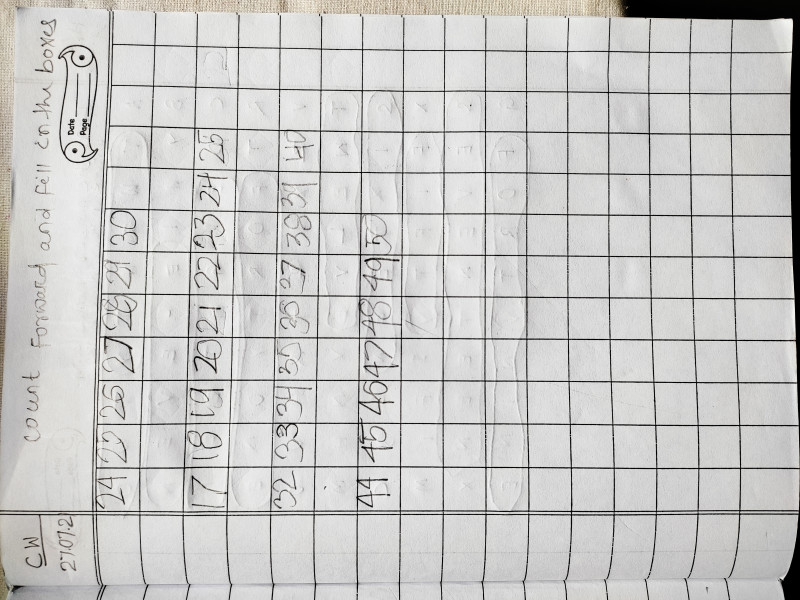 CW
27.07.2
count forward and fill in the boxes
Date
Page
24 25 26 27 28 29 30
17 18 19 20 21 22 23 24 25
32 33 34 35 36 37 38 39 40
44 45 46 47 48 49 50